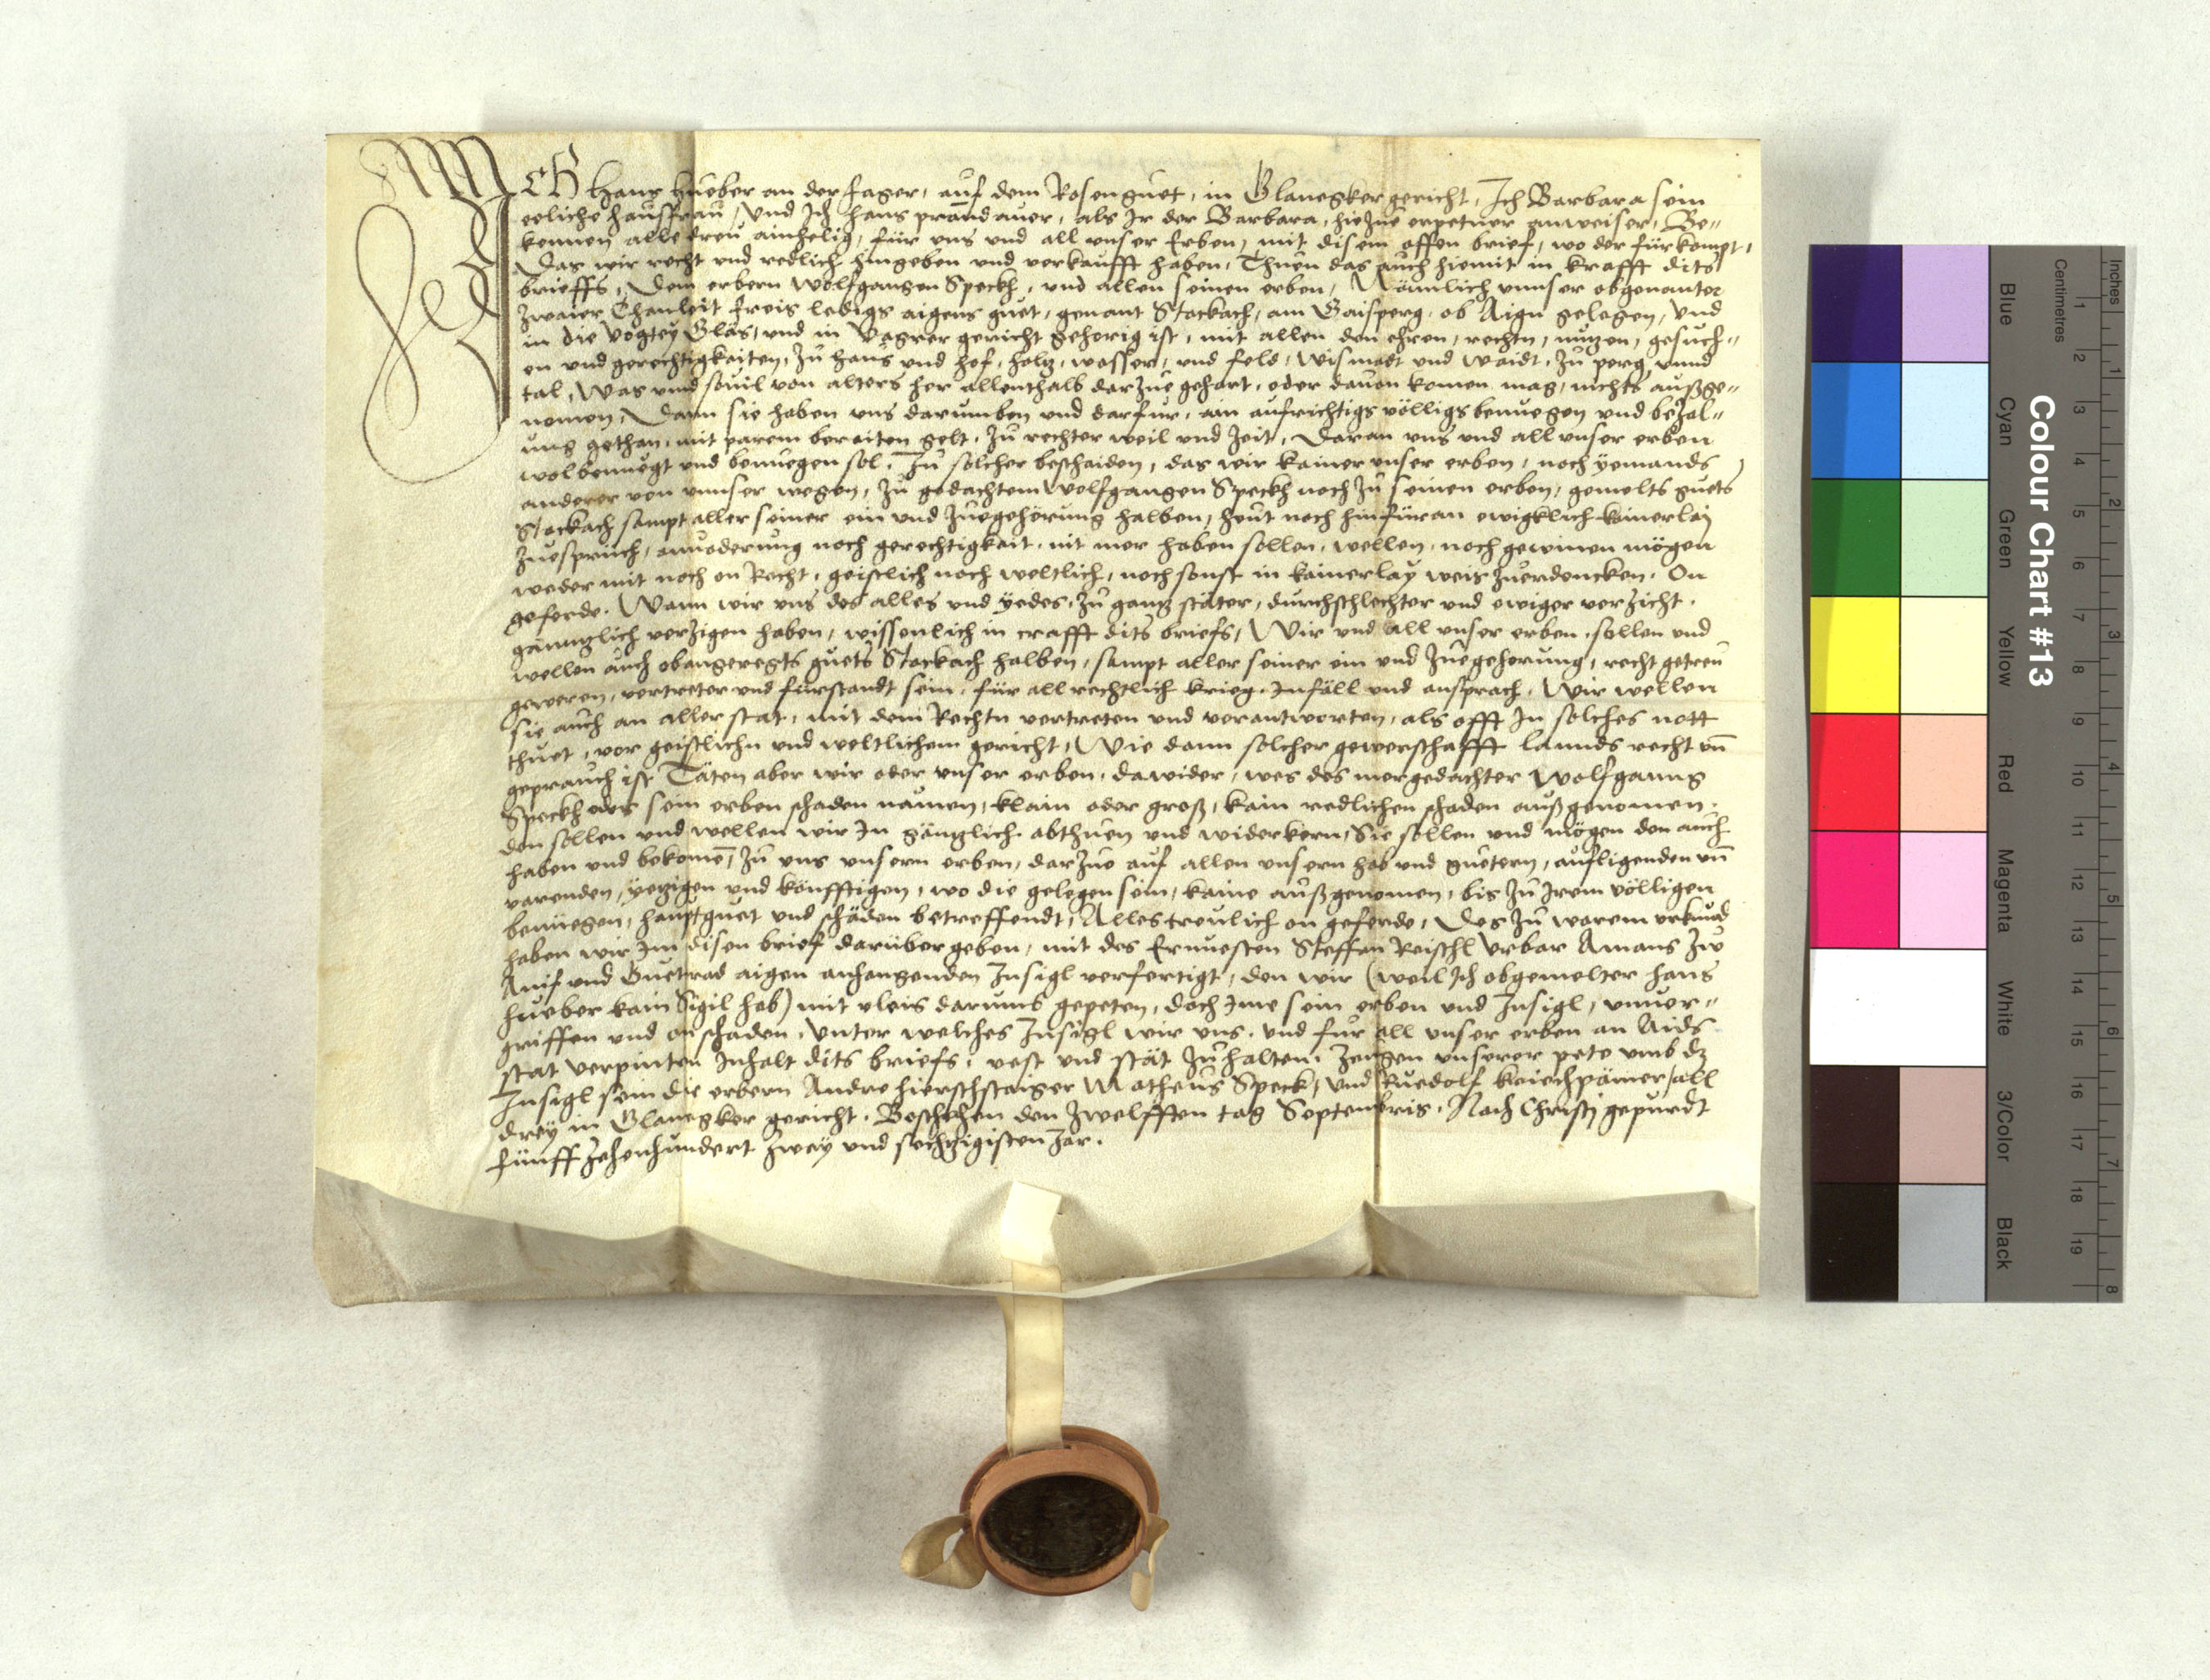 Ich Hans Hueber an der Fager, auf dem Rosenguet, in Glanegker gericht, Ich Barbara sein
eeliche hausfrau, Und Ich Hans prandauer, als Ir der Barbara, hiezue erpetner anweiser, Be-
kennen alle dreu ainhelig, für uns und all unser Erben, mit disem offen brief, wo der fürkompt,
Das wir recht und redlich hingeben und verkaufft haben, Thuen das auch hiemit in krafft dits
brieffs, Dem erbern Wolfgangen Speckh, und allen seinen erben, Nämlich unnser obgenanter
zwaier Chanleit freis ledigs aigens guet, genant Stockach, am Gaisperg, ob Aign gelegen, Und
in die Vogtey Gläs, und in gericht gehorig ist, mit allen den ehren, rechtn, nuzen, gesuch-
en und gerechtigkaiten, zu haus und hof, holz, wasser, und feld, Wismadt und Waidt, zu perg unnd
tal, Was und sovil von alters her allenthalb darzue gehört, oder davon komen mag, nichts außge-
nomen, Dann sie haben uns darumben und darfur, ain aufrichtigs völligs benuegen und bezal-
ung gethan, mit parem beraiten gelt, zu rechter weil und zeit, Daran uns und all unser erben
wol benuegt und benuegen sol, Zu solcher beschaiden, das wir kainer unser erben, noch yemands
anderer von unnser wegen, zu gedachtem Wolfgangen Speckh noch zu seinen erben, gemelts guets
Stockach sampt aller seiner ein und zuegehörung halben, heut noch hinfüran ewigklich kainerlai
zuespruch, anvoderung noch gerechtigkait, nit mer haben sollen, wellen, noch gewinen mögen
weder mit noch on Recht, geistlich noch weltlich, noch sonst in kainerlay weis zuerdencken. On
geferde. Wann wir uns des alles und yedes, zu ganz stäter, durchschlechter und ewiger verzicht,
gännzlich verzigen haben, wissenlich in crafft dits briefs, Wir und all unser erben, sollen und
wellen auch obangeregts guets Stockach halben, sampt aller seiner ein und zuegehorung, recht getreu
geweren, vertreter und fürstandt sein, für all rechtlich krieg, Infäll und ansprach, Wir wellen
sie auch an aller stat, mit dem Rechtn vertreten und verantworten, als offt In solches nott
thuet, vor geistlichn und weltlichem gericht, Wie dann solcher gewerschafft lannds recht un̄
geprauch ist Täten aber wir oder unser erben, dawider, wes des mergedachter Wolfganng
Speckh oder sein erben schaden namen, klain oder groß, kain redlichen schaden außgenomen,
den sollen und wellen wir In gänzlich abthuen und widerkern, Sie sollen und mögen den auch
haben und bekomē, zu uns unsern erben, darzue auf allen unsern hab und guetern, aufligenden un̄
varenden, yezigen und könfftigen, wo die gelegen sein, kaine außgenomen, bis zu Irem völligen
benüegen, hauptguet und schäden betreffendt, Alles treulich on geferde, Des zu warem urkund
haben wir Im disen brief darüber geben, mit des Ernvesten Steffen Reischl Urbar Amans zu
Anif und Guetrad aigen anhangenden Insigl verfertigt, den wir (weil Ich obgemelter Hans
Hueber kain Sigil hab) mit vleis darumb gepeten, doch Ime sein erben und Insigl, unver-
griffen und on schaden, Unter welches Insigl wir uns, und für all unser erben an Aids
stat verpinten Inhalt dits briefs, vest und stät zuhalten, Zeugen unserer pete umb dz
Insigl sein die erbern Andre Hierschstaiger Matheus Speck, und Ruedolf all
drey in Glanegker gericht, Beschehen den Zwelfften tag Septembris, Nach Christj gepurdt
fünff zehenhundert zway und sechzigisten Jar.
Colour Chart #13
Blue
Cyan
Green
Yellow
Red
Magenta
White
3/Color
Black
Centimetres
1 2 3 4 5 6 7 8 9 10 11 12 13 14 15 16 17 18 19
Inches
1 2 3 4 5 6 7 8